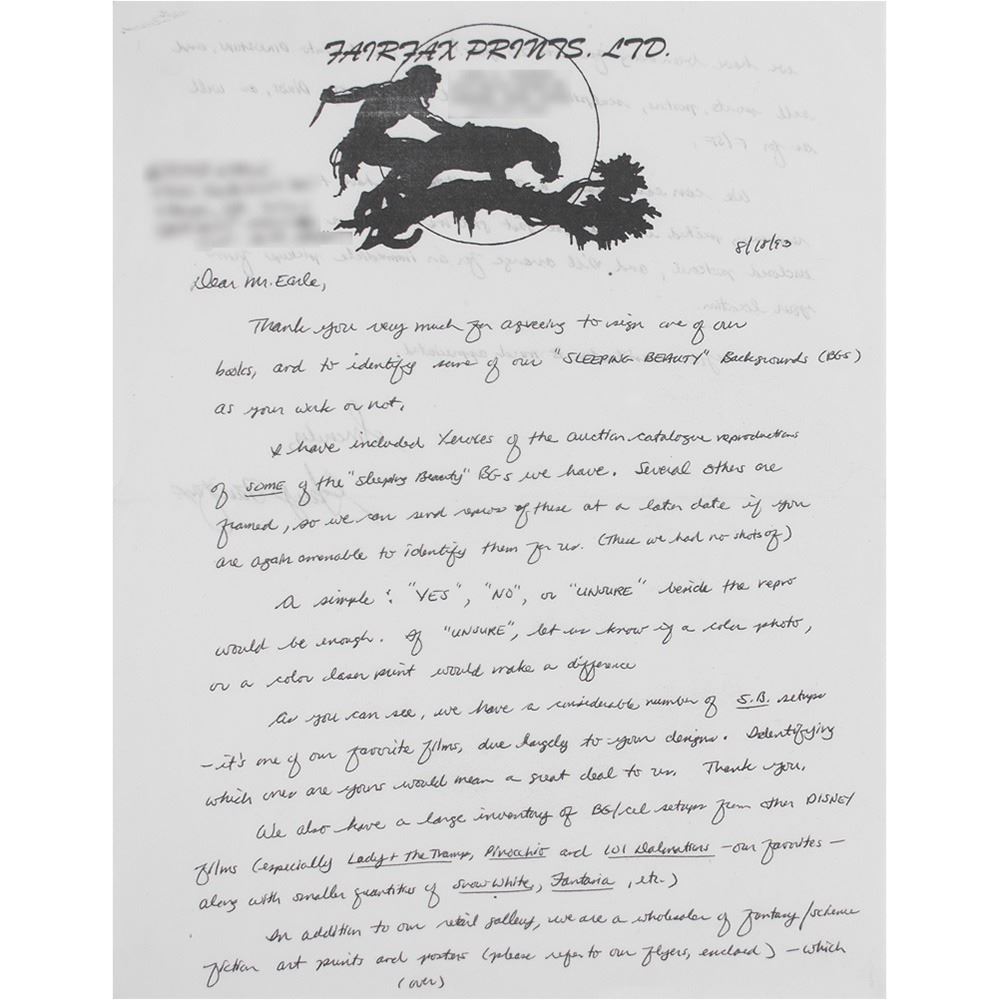 FAIRFAX PRINTS, LTD.
8/18/93
Dear Mr. Earle,
Thank you very much for agreeing to sign one of our
books, and to identify some of our "SLEEPING BEAUTY" Backgrounds (BGS)
as your work or not.
I have included Xeroxes of the auction catalogue reproductions
of SOME of the "Sleeping Beauty" BGs we have. Several others are
framed, so we can send repros of these at a later date if you
are again amenable to identify them for us. (These we had no shots of)
A simple: "YES", "NO", or "UNSURE" beside the repro
would be enough. If "UNSURE", let us know if a color photo,
or a color laser print would make a difference
As you can see, we have a considerable number of S.B. setups
- it's one of our favorite films, due largely to your designs. Identifying
which ones are yours would mean a great deal to us. Thank you.
We also have a large inventory of BG/cel setups from other DISNEY
films (especially Lady + The Tramp, Pinocchio and 101 Dalmations - our favorites -
along with smaller quantities of Snow White, Fantasia, etc.)
In addition to our retail gallery, we are a wholesaler of fantasy/science
fiction art prints and posters (please refer to our flyers, enclosed) - which
(over)